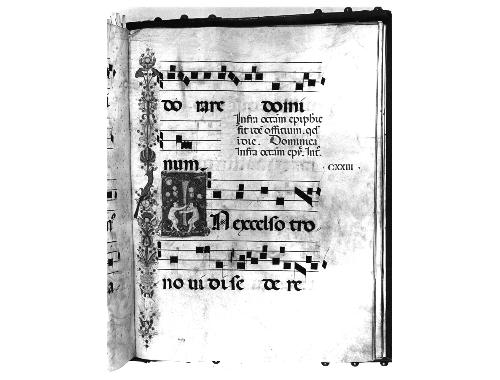 do rare domi
Infra octam epiphie
fit idē officium. qd̄
i die. Dominica
Infra octam epȳ. Int̄.
num.
CXXIII
In excelso tro
no vi di se de re